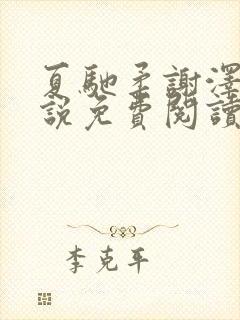 夏馳柔謝澤
說免費閱讀
李克平